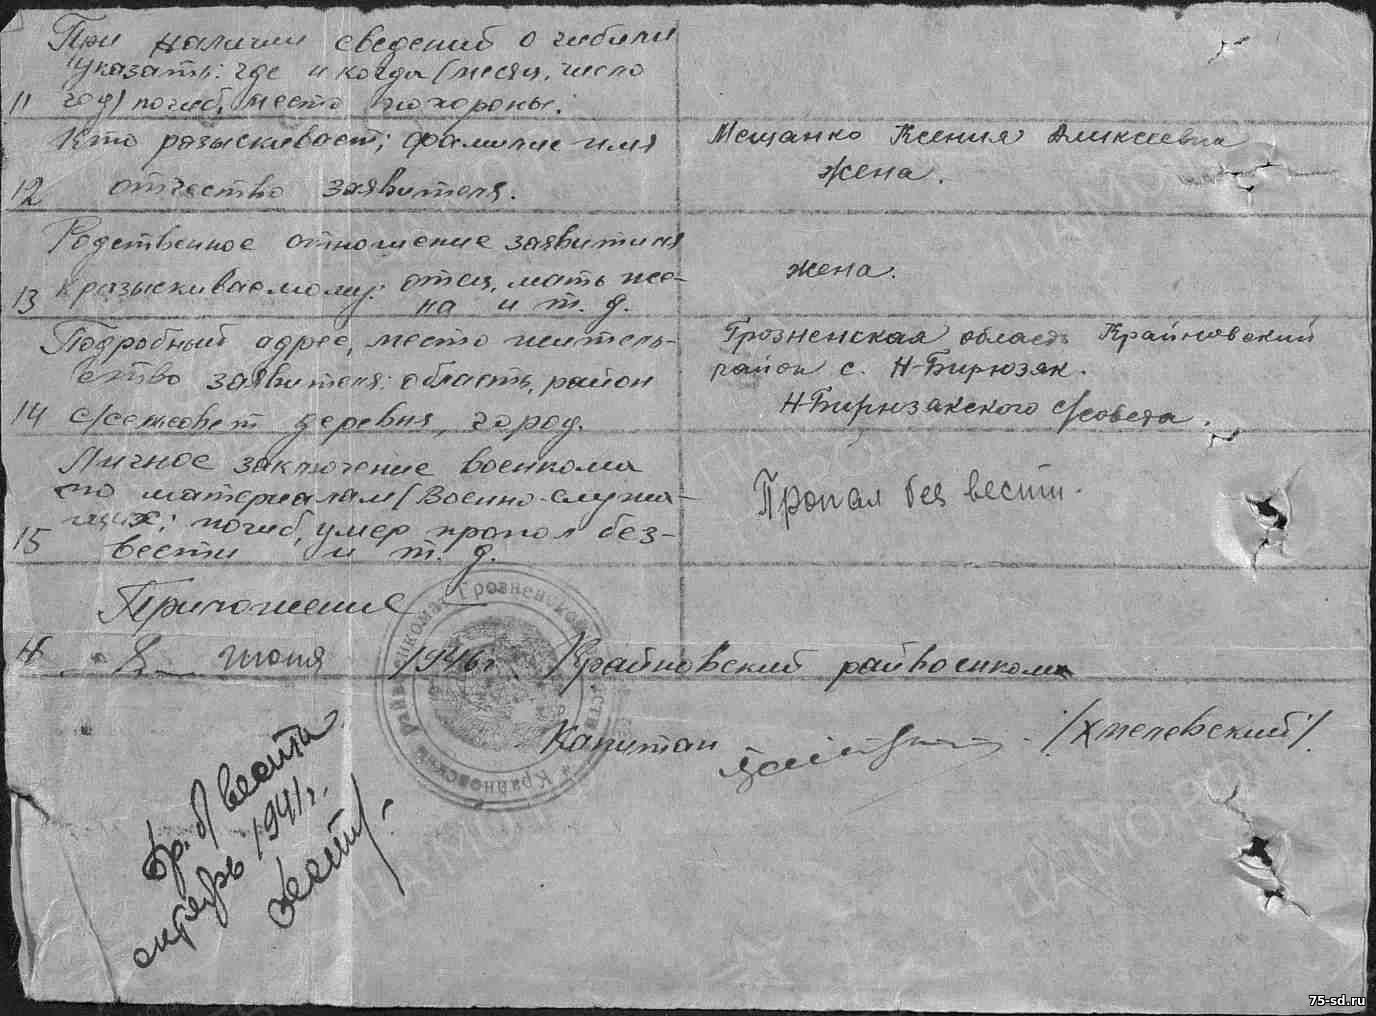 При наличии сведений о гибели
указать: где и когда (месяц, число
11 год) погиб, место похороны.
Кто разыскивает; фамилие имя
12 отчество заявителя.
Мещанко Ксения Алексеевна
жена.
Родственное отношение заявителя
13 к разыскиваемому: отец, мать же-
на и т. д.
жена.
Подробный адрес, место житель-
ство заявителя: область, район
14 с/сельсовет деревня, город.
Грозненская область Крайновский
район с. Н-Бирюзяк.
Н-Бирюзакского с/совета.
Личное заключение военкома
по материалам (Военно-служа-
щих; погиб, умер пропал без-
15 вести и т. д.
Пропал без вести.
Приложение
8 июня 1946 г. Крайновский райвоенком
Капитан /Хмелевский/.
Крайновский Грозненской области
Пр. б/вести
октябрь 1941 г.
ЦАМО РФ
75-sd.ru